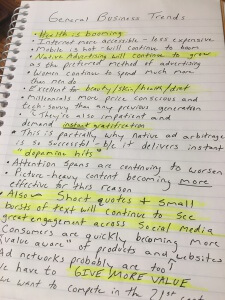 General Business Trends
• Health is booming
• Internet more accessible - less expensive
• Mobile is hot - will continue to boom
• Native Advertising will continue to grow
as the preferred method of advertising
• Women continue to spend much more
than men do
• Excellent for beauty/skin/health/diet
• Millennials more price conscious and
tech-savvy than any previous generation
• They're also impatient and
demand instant gratification
• This is partially why native ad arbitrage
is so successful - b/c it delivers instant
"dopamine hits"
• Attention spans are continuing to worsen
• Picture-heavy content becoming more
effective for this reason
• Also → Short quotes + small
bursts of text will continue to see
great engagement across Social Media
Consumers are quickly becoming more
"value aware" of products and websites
Ad networks probably are too!
We have to GIVE MORE VALUE
we want to compete in the 21st